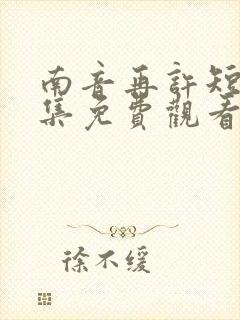 南音再許短
集免費觀看
徐不缓